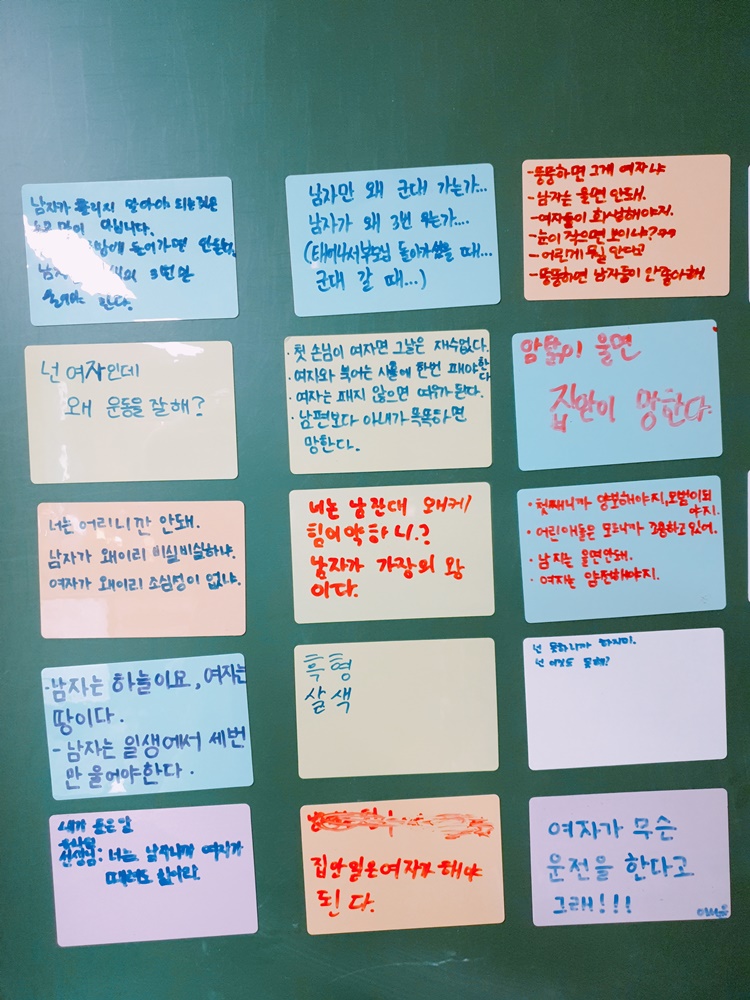 남자가 흘리지 말아야 되는것은
눈물만이 아닙니다.
들어가면 안돼
남자는 3번만
한다.
남자만 왜 군대 가는가...
남자가 왜 3번 우는가....
(태어나서부모님 돌아가셨을 때...
군대 갈 때...)
-뚱뚱하면 그게 여자냐
-남자는 울면 안돼.
-여자들이 화장해야지.
-눈이 작으면 보이냐?ㅋㅋ
-어린게 뭘 안다고
-뚱뚱하면 남자들이 안좋아해
넌 여자인데
왜 운동을 잘해?
·첫 손님이 여자면 그날은 재수없다.
·여자와 북어는 사흘에 한번 패야한다
·여자는 패지 않으면 여우가된다.
·남편보다 아내가 똑똑하면
망한다.
암탉이 울면
집안이 망한다.
너는 어리니깐 안돼.
남자가 왜이리 비실비실하냐.
여자가 왜이리 조심성이 없냐.
너는 남잔대 왜케
힘이약하니.?
남자가 가장의 왕
이다.
·첫째니까 양보해야지,모범이되
야지.
·어린애들은 모르니까 조용하고있어.
·남자는 울면안돼.
·여자는 얌전해야지.
-남자는 하늘이요, 여자는
땅이다.
-남자는 일생에서 세번
만 울어야한다.
흑형
살색
넌 못하니까 하지마.
넌 이것도 못해?
내가 들은말
선생님: 너는 남자니까 여자가
때려도 참아라
집안일은여자가 해야
된다.
여자가 무슨
운전을 한다고
그래!!!